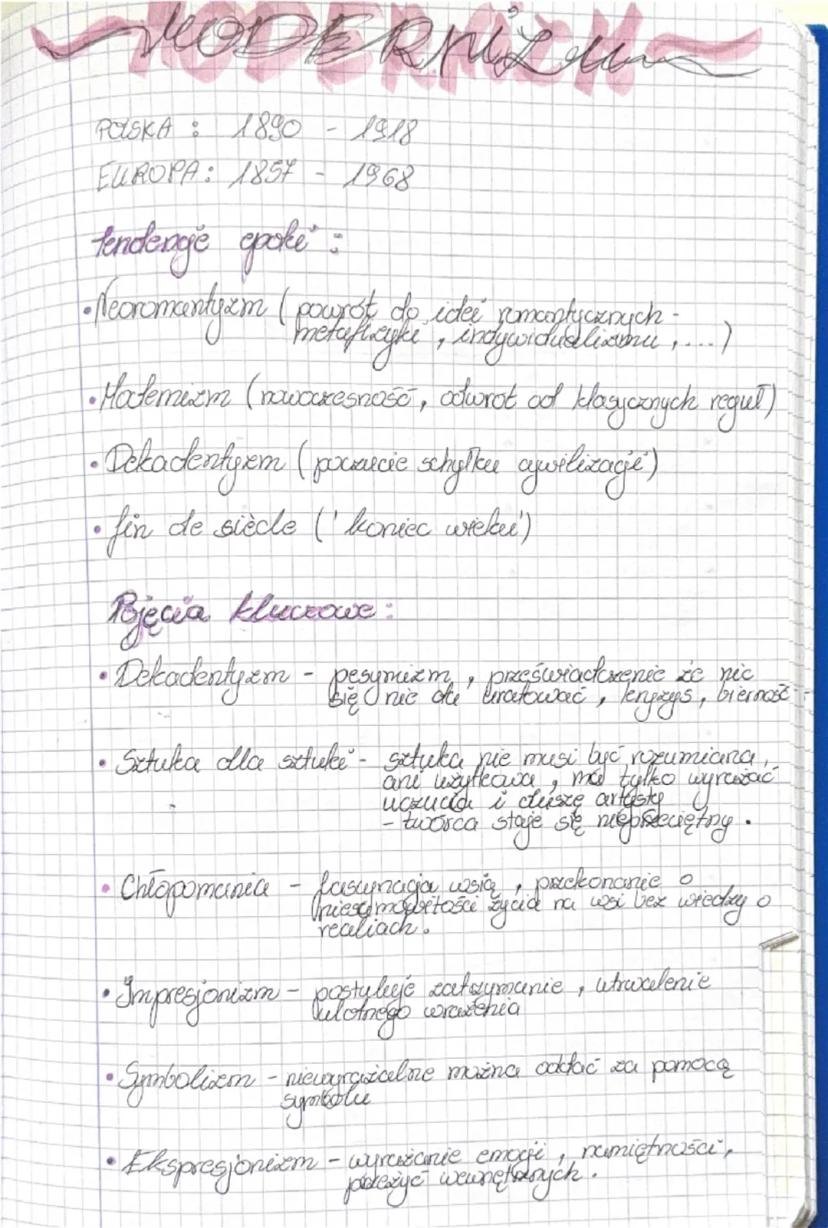 MODERNIZM
POLSKA : 1890 - 1918
EUROPA: 1857 - 1968
tendencje epoki :
• Neoromantyzm ( powrót do idei romantycznych -
metafizyki , indywidualizmu , .... )
• Modernizm ( nowoczesność , odwrót od klasycznych reguł )
• Dekadentyzm ( poczucie schyłku cywilizacji )
• fin de siècle (' koniec wieku')
Pojęcia kluczowe :
• Dekadentyzm - pesymizm , przeświadczenie że nic
się nie da uratować , kryzys , bierność
• Sztuka dla sztuki - sztuka nie musi być rozumiana ,
ani użytkowa , ma tylko wyrażać
uczucia i duszę artysty
- twórca staje się nieprzeciętny .
• Chłopomania - fascynacja wsią , przekonanie o
niesamowitości życia na wsi bez wiedzy o
realiach .
• Impresjonizm - postuluje zatrzymanie , utrwalenie
ulotnego wrażenia
• Symbolizm - niewyrażalne można oddać za pomocą
symbolu
• Ekspresjonizm - wyrażanie emocji , namiętności ,
przeżyć wewnętrznych .